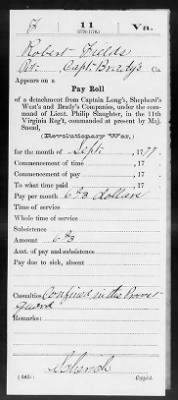 11 Va.
Robert Fields
Capt. Brady's Co
Appears on a
Pay Roll
of a detachment from Captain Long's, Shepherd's
West's and Brady's Companies, under the com-
mand of Lieut. Philip Slaughter, in the 11th
Virginia Reg't, commanded at present by Maj.
Snead,
(Revolutionary War,)
for the month of Sept: , 1777.
Commencement of time , 17
Commencement of pay , 17
To what time paid , 17
Pay per month 6 2/3 dollars
Time of service
Whole time of service
Subsistence
Amount 6 2/3
Amt. of pay and subsistence
Pay due to sick, absent
Casualties Confined in the Provost
guard
Remarks:
Copyist.